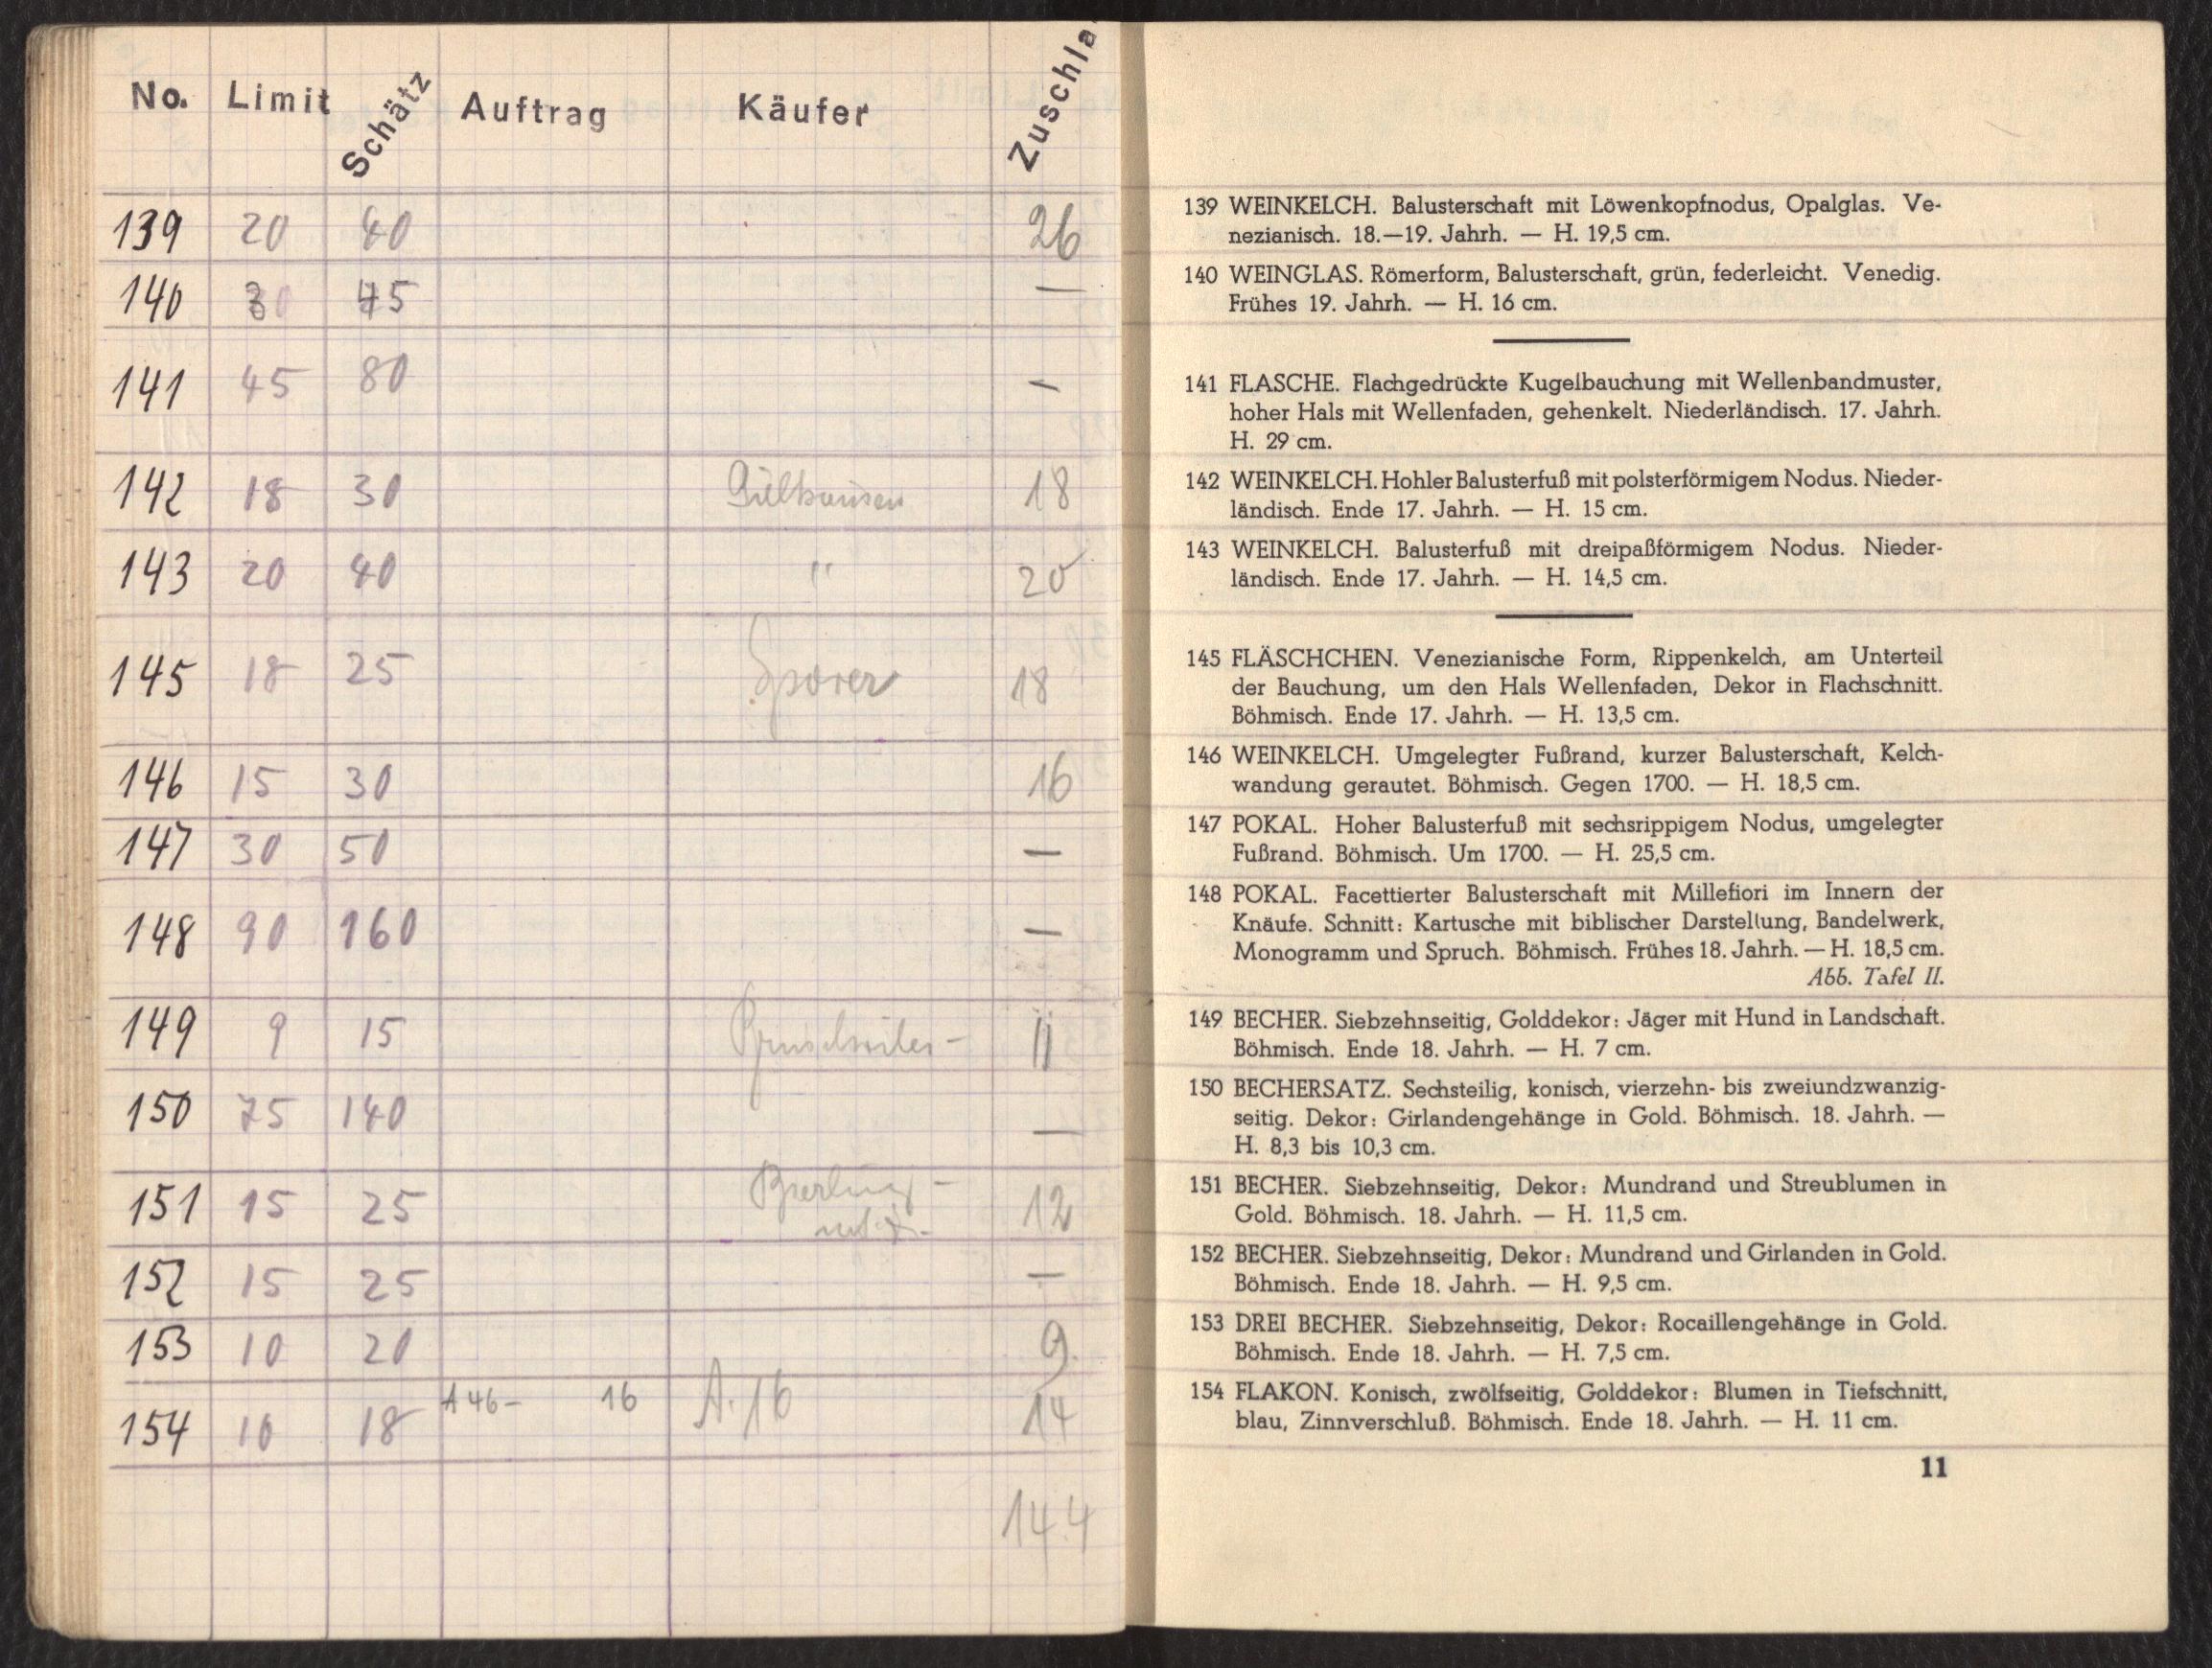 No. Limit Schätz Auftrag Käufer Zuschla
139 20 40 26
140 30 45 —
141 45 80 —
142 18 30 18
143 20 40 " 20
145 18 25 Sporer 18
146 15 30 16
147 30 50 —
148 90 160 —
149 9 15 11
150 75 140 —
151 15 25 12
152 15 25 —
153 10 20 9
154 10 18 A 46- 16 A. 16 14
144
139 WEINKELCH. Balusterschaft mit Löwenkopfnodus, Opalglas. Ve-
nezianisch. 18.—19. Jahrh. — H. 19,5 cm.
140 WEINGLAS. Römerform, Balusterschaft, grün, federleicht. Venedig.
Frühes 19. Jahrh. — H. 16 cm.
141 FLASCHE. Flachgedrückte Kugelbauchung mit Wellenbandmuster,
hoher Hals mit Wellenfaden, gehenkelt. Niederländisch. 17. Jahrh.
H. 29 cm.
142 WEINKELCH. Hohler Balusterfuß mit polsterförmigem Nodus. Nieder-
ländisch. Ende 17. Jahrh. — H. 15 cm.
143 WEINKELCH. Balusterfuß mit dreipaßförmigem Nodus. Nieder-
ländisch. Ende 17. Jahrh. — H. 14,5 cm.
145 FLÄSCHCHEN. Venezianische Form, Rippenkelch, am Unterteil
der Bauchung, um den Hals Wellenfaden, Dekor in Flachschnitt.
Böhmisch. Ende 17. Jahrh. — H. 13,5 cm.
146 WEINKELCH. Umgelegter Fußrand, kurzer Balusterschaft, Kelch-
wandung gerautet. Böhmisch. Gegen 1700. — H. 18,5 cm.
147 POKAL. Hoher Balusterfuß mit sechsrippigem Nodus, umgelegter
Fußrand. Böhmisch. Um 1700. — H. 25,5 cm.
148 POKAL. Facettierter Balusterschaft mit Millefiori im Innern der
Knäufe. Schnitt: Kartusche mit biblischer Darstellung, Bandelwerk,
Monogramm und Spruch. Böhmisch. Frühes 18. Jahrh. — H. 18,5 cm.
Abb. Tafel II.
149 BECHER. Siebzehnseitig, Golddekor: Jäger mit Hund in Landschaft.
Böhmisch. Ende 18. Jahrh. — H. 7 cm.
150 BECHERSATZ. Sechsteilig, konisch, vierzehn- bis zweiundzwanzig-
seitig. Dekor: Girlandengehänge in Gold. Böhmisch. 18. Jahrh. —
H. 8,3 bis 10,3 cm.
151 BECHER. Siebzehnseitig, Dekor: Mundrand und Streublumen in
Gold. Böhmisch. 18. Jahrh. — H. 11,5 cm.
152 BECHER. Siebzehnseitig, Dekor: Mundrand und Girlanden in Gold.
Böhmisch. Ende 18. Jahrh. — H. 9,5 cm.
153 DREI BECHER. Siebzehnseitig, Dekor: Rocaillengehänge in Gold.
Böhmisch. Ende 18. Jahrh. — H. 7,5 cm.
154 FLAKON. Konisch, zwölfseitig, Golddekor: Blumen in Tiefschnitt,
blau, Zinnverschluß. Böhmisch. Ende 18. Jahrh. — H. 11 cm.
11